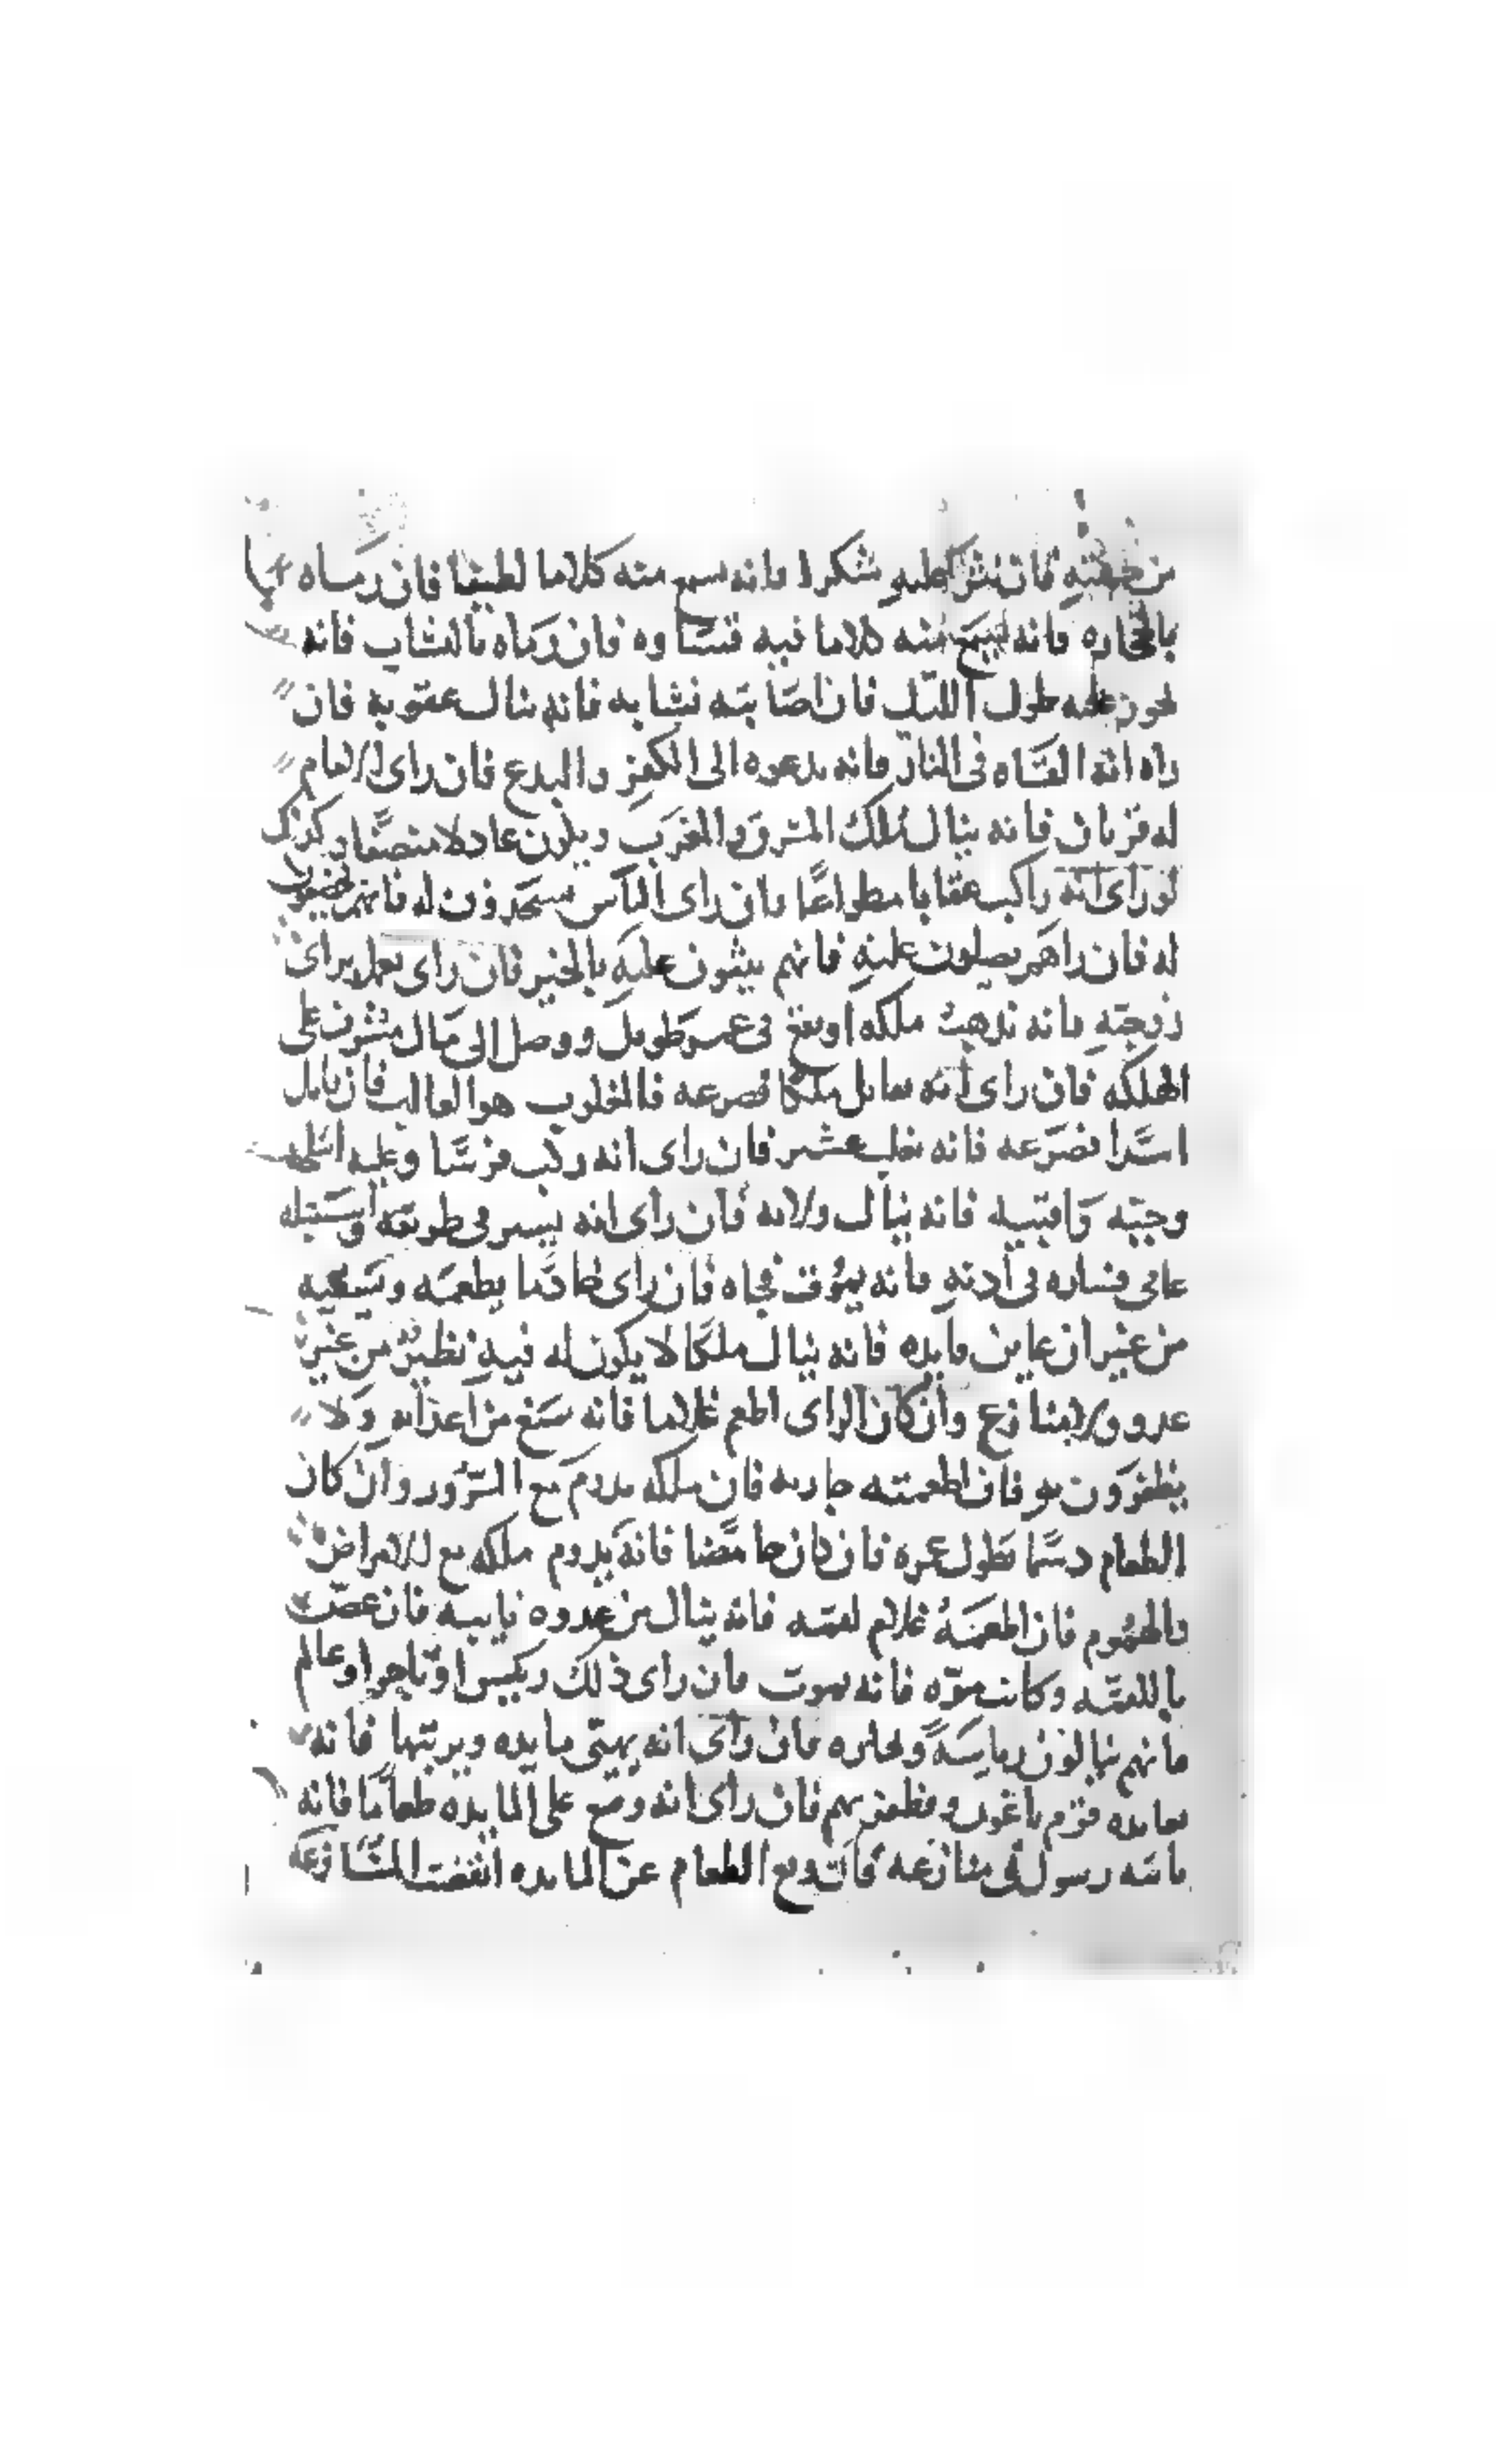 من جهته فان نثر عليه شكرا فانه يسمع منه كلاما لطيفا فان رماه
بالحجاره فانه يسمع منه كلاما فيه قساوه فان رماه بالنشاب فانه
عليه طول الليل فان اصابته نشابه فانه ينال عقوبه فان
راه انه القاه فى النار فانه يدعوه الى الكفر والبدع فان راى الامام
له قرنان فانه ينال ملك المشرق والمغرب ويكون عادلا منصفا وكذلك
لو راى انه راكب عقابا مطواعا فان راى الناس يسجدون له فانهم يخضعون
له فان راهم يصلون عليه فانهم يثنون عليه بالخير فان راى يعمل براى
زوجته فانه يذهب ملكه او يقع فى طويل ووصل الى مال مشرف على
الهلكه فان راى انه يقاتل ملكا فصرعه فالمغلوب هو الغالب فان قاتل
اسدا فصرعه فانه يغلب فان راى انه ركب فرسا وعليه اسلحه
وجبه فانه ينال ولايه فان راى انه يسير فى طريقه واستقبله
عامى فساره فى ادنه فانه يموت فجاه فان راى خادما يطعمه ويسقيه
من غير ان عاين مايده فانه ينال ملكا لا يكون له فيه نظير من غير
عدو ولا منازع وان كان الراى اطعم غلاما فانه من اعدايه ولا
يظفرون به فان اطعمته جاريه فان ملكه يدوم مع السرور وان كان
الطعام دسما يطول عمره فان كان حامضا فانه يدوم ملكه مع الامراض
والهموم فان اطعمه غلام لقمه فانه ينال من عدوه نايبه فان غص
باللقمه وكانت مره فانه يموت فان راى ذلك رييس او تاجر او عالم
فانهم ينالون رياسة وتجاره فان راى انه يهيى مايده ويرتبها فانه
يعانده قوم باغون ويظفر بهم فان راى انه وضع على المايده طعاما فانه
ياتيه رسول فى منازعه فان رفع الطعام عن المايده انقضت المنازعه